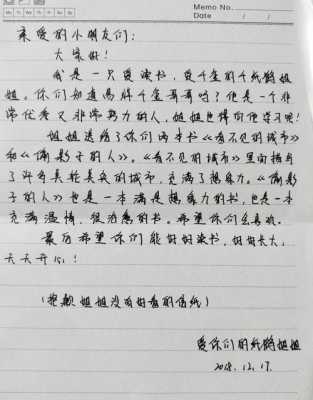 Memo No.
Date / /
Mo Tu We Th Fr Sa Su
亲爱的小朋友们：
大家好！
我是一只爱读书，爱千玺的千纸鹤姐
姐。你们知道易烊千玺哥哥吗？他是一个非
常优秀又非常努力的人，姐姐也得向他学习呢！
姐姐送给了你们两本书《看不见的城市》
和《偷影子的人》。《看不见的城市》里面描写
了许有其轮美奂的城市，充满了想象力。《偷影
子的人》也是一本满是想象力的书，也是一本
充满温情，很治愈的书。希望你们会喜欢。
最后希望你们能好好读书，好好长大，
天天开心！
（抱歉姐姐没有好看的信纸）
爱你们的纸鹤姐姐
2018.12.17.